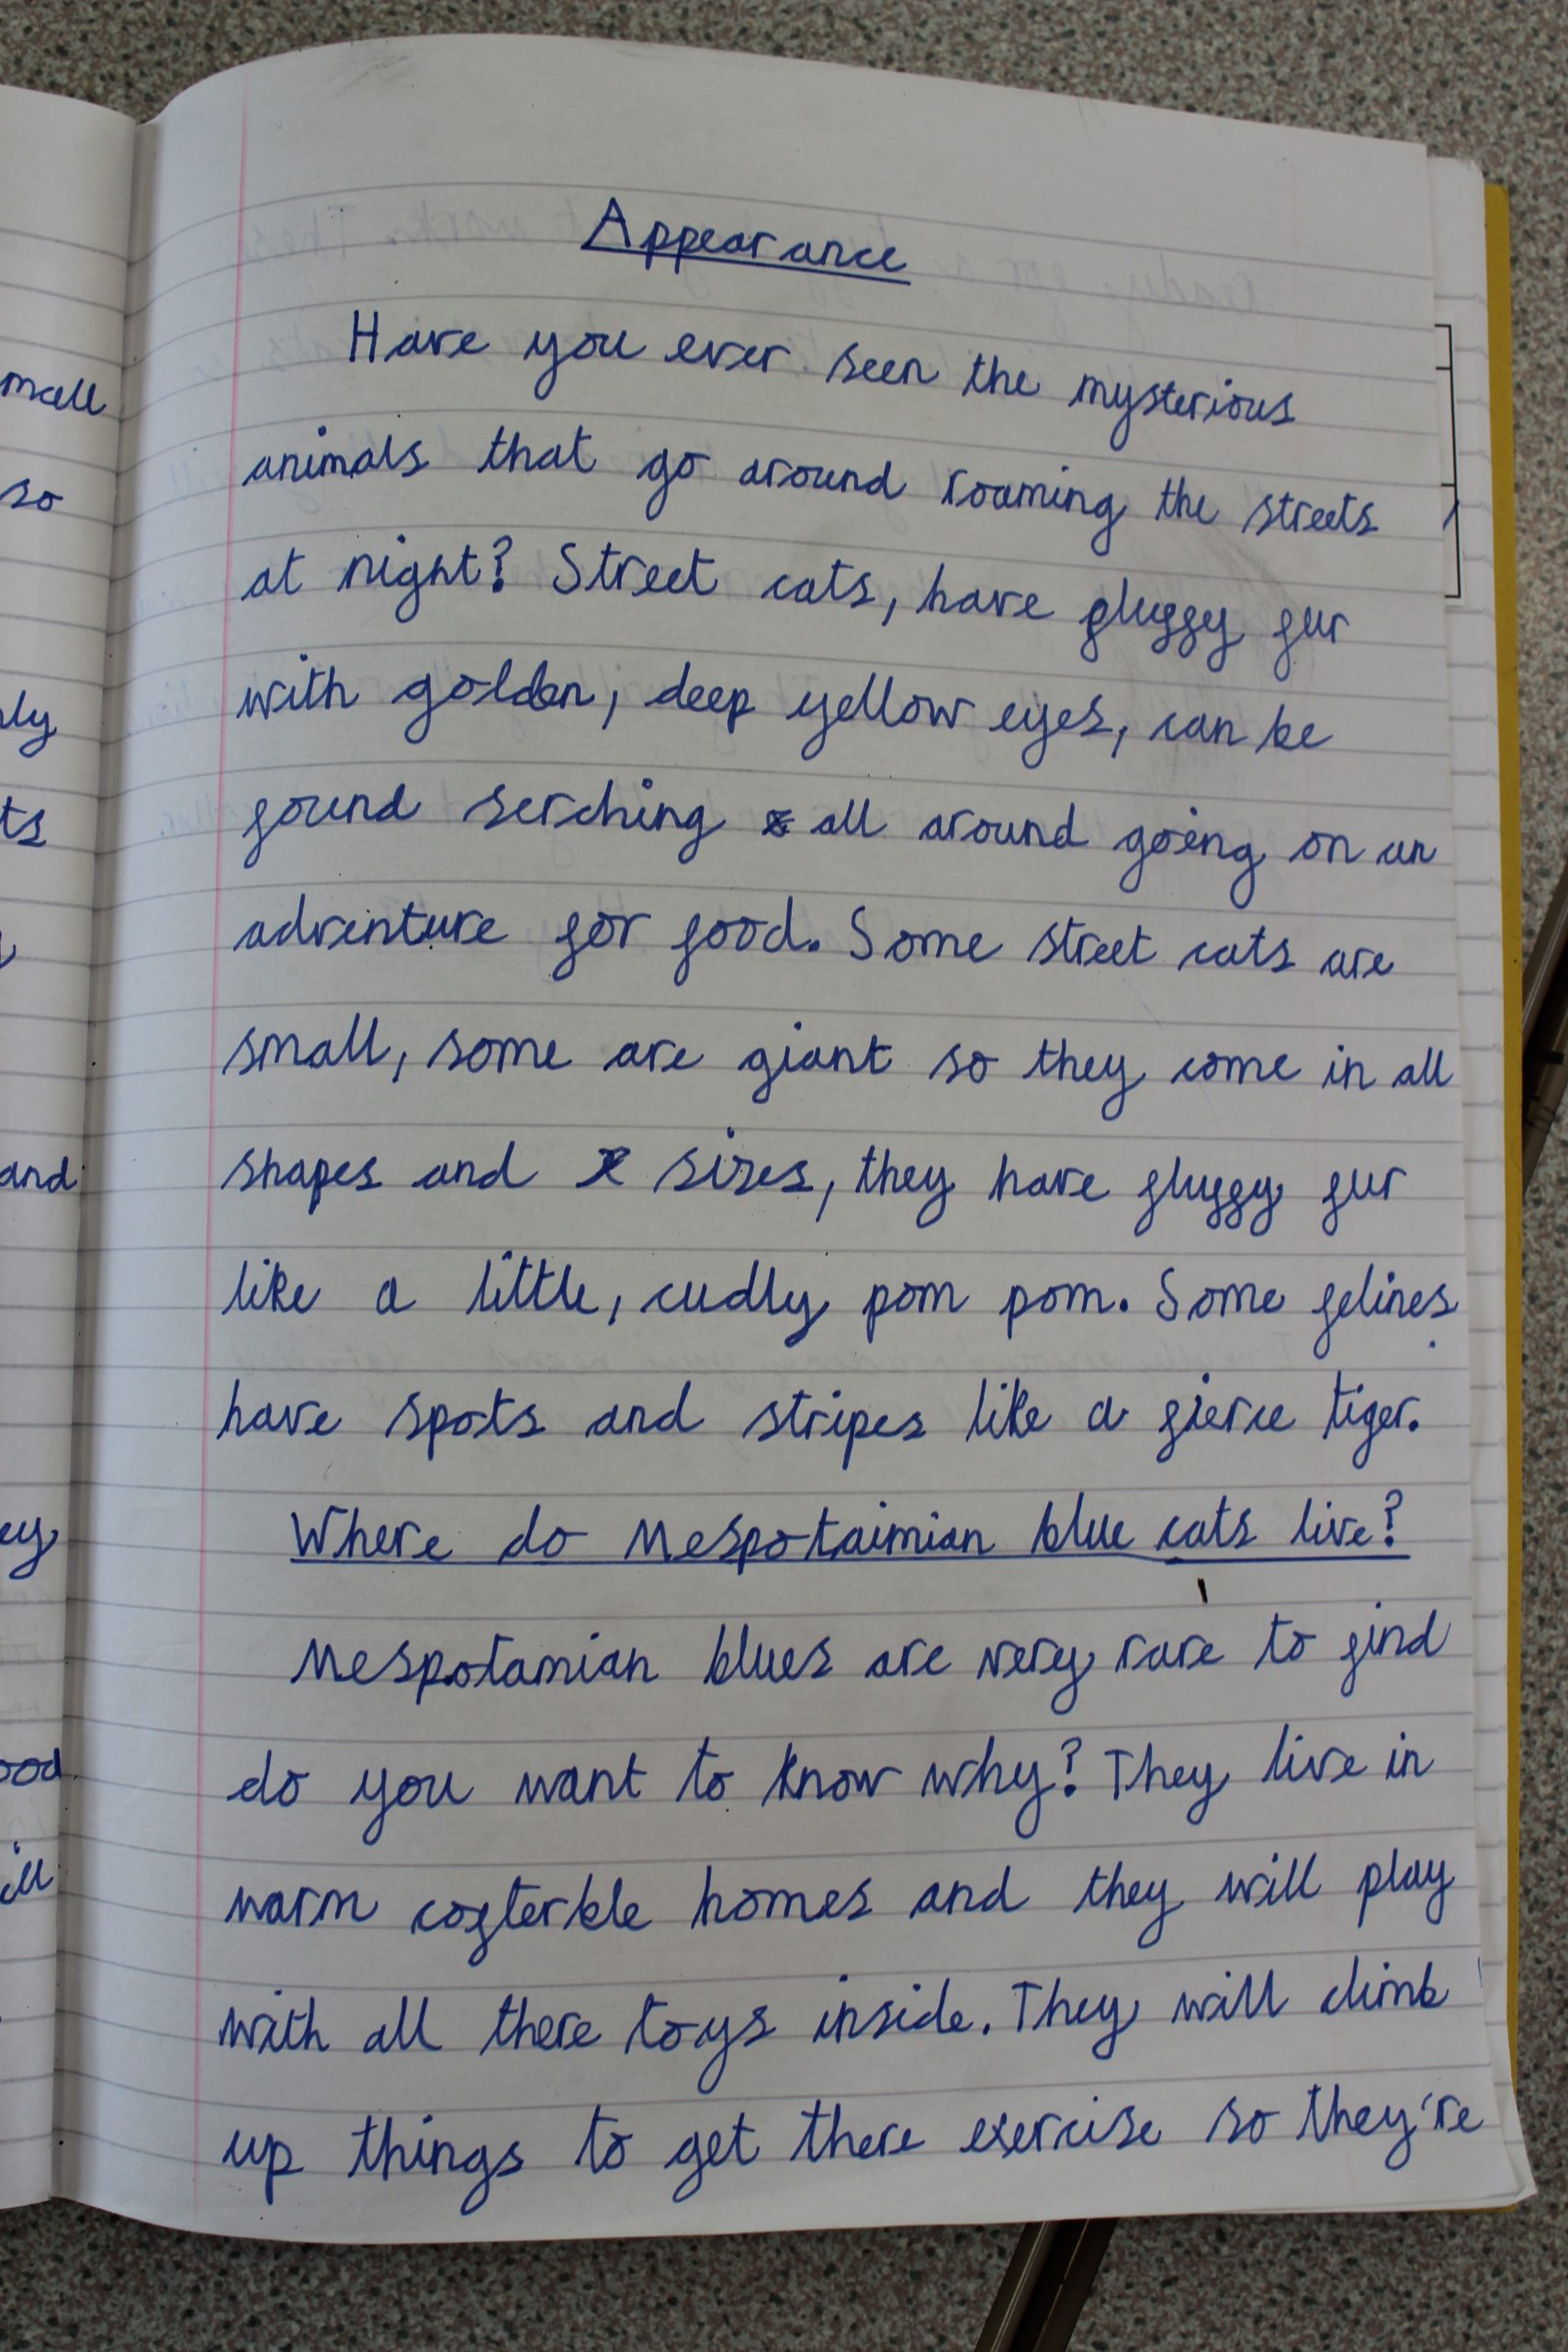 Appearance
Have you ever seen the mysterious
animals that go around roaming the streets
at night? Street cats, have fluffy fur
with golden, deep yellow eyes, can be
found serching all around going on an
adventure for food. Some street cats are
small, some are giant so they come in all
shapes and sizes, they have fluffy fur
like a little, cudly pom pom. Some felines
have spots and stripes like a fierce tiger.
Where do Mespotaimian blue cats live?
Mespotamian blues are very rare to find
do you want to know why? They live in
warm cofterble homes and they will play
with all there toys inside. They will climb
up things to get there exercise so they're
mall
so
ly
ts
and
ey
ood
ill